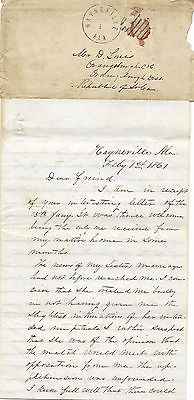 HAYNEVILLE
ALA
Mr D. Louis
Orangeburgh C.H.
Orangeburgh Dist
Republic of So Ca
Hayneville Ala
Feby 1st 1861
Dear Friend.
I am in receipt
of your interesting letter of the
5th Jany. It was thrice welcome
being the only one received from
my native home in some
months.
The news of my Sisters marriage
had not before reached me. I con-
ceive that she treated me badly
in not having given me the
slightest intimation of her inten-
ded, nuptials I rather suspect
that she was of the opinion that
the match would meet with
opposition from me, the ap-
prehension was unfounded.
I know full well that there could